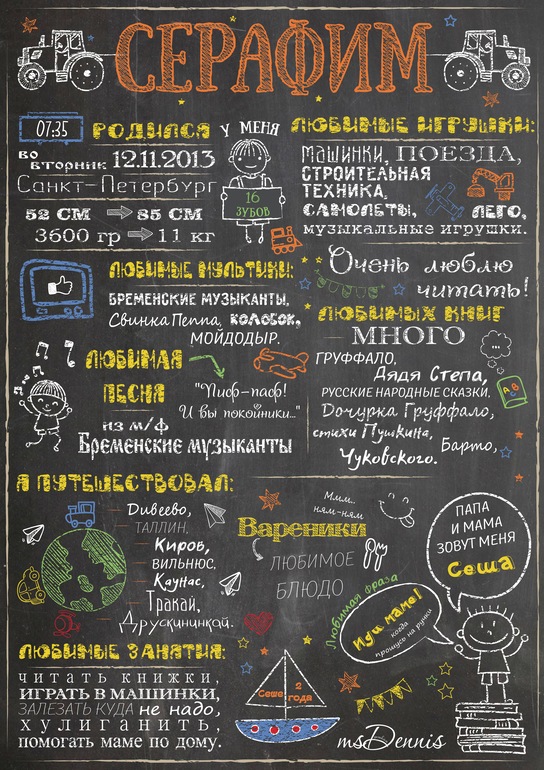 СЕРАФИМ
07:35
РОДИЛСЯ
во вторник 12.11.2013
Санкт-Петербург
52 СМ 85 СМ
3600 гр 11 кг
У МЕНЯ
16
ЗУБОВ
ЛЮБИМЫЕ ИГРУШКИ:
МАШИНКИ, ПОЕЗДА,
СТРОИТЕЛЬНАЯ
ТЕХНИКА,
САМОЛЕТЫ, ЛЕГО,
музыкальные игрушки.
ЛЮБИМЫЕ МУЛЬТИКИ:
БРЕМЕНСКИЕ МУЗЫКАНТЫ,
Свинка Пеппа, КОЛОБОК,
МОЙДОДЫР.
Очень люблю
читать!
ЛЮБИМЫХ КНИГ
МНОГО
ГРУФФАЛО,
Дядя Степа,
РУССКИЕ НАРОДНЫЕ СКАЗКИ,
Дочурка Груффало,
стихи Пушкина,
Барто,
Чуковского.
A B C
ЛЮБИМАЯ
ПЕСНЯ
"Пиф-паф!
И вы покойники..."
из м/ф
Бременские музыканты
Я ПУТЕШЕСТВОВАЛ:
Дивеево,
ТАЛЛИН,
Киров,
ВИЛЬНЮС,
Каунас,
Тракай,
Друскининкай.
Ммм..
ням-ням
Вареники
ЛЮБИМОЕ
БЛЮДО
ПАПА
И МАМА
ЗОВУТ МЕНЯ
Сеша
Любимая фраза
Иди мама!
когда
прошусь на ручки
ЛЮБИМЫЕ ЗАНЯТИЯ:
читать книжки,
ИГРАТЬ В МАШИНКИ,
ЗАЛЕЗАТЬ КУДА не надо,
хулиганить,
помогать маме по дому.
Сеше 2
года
msDennis